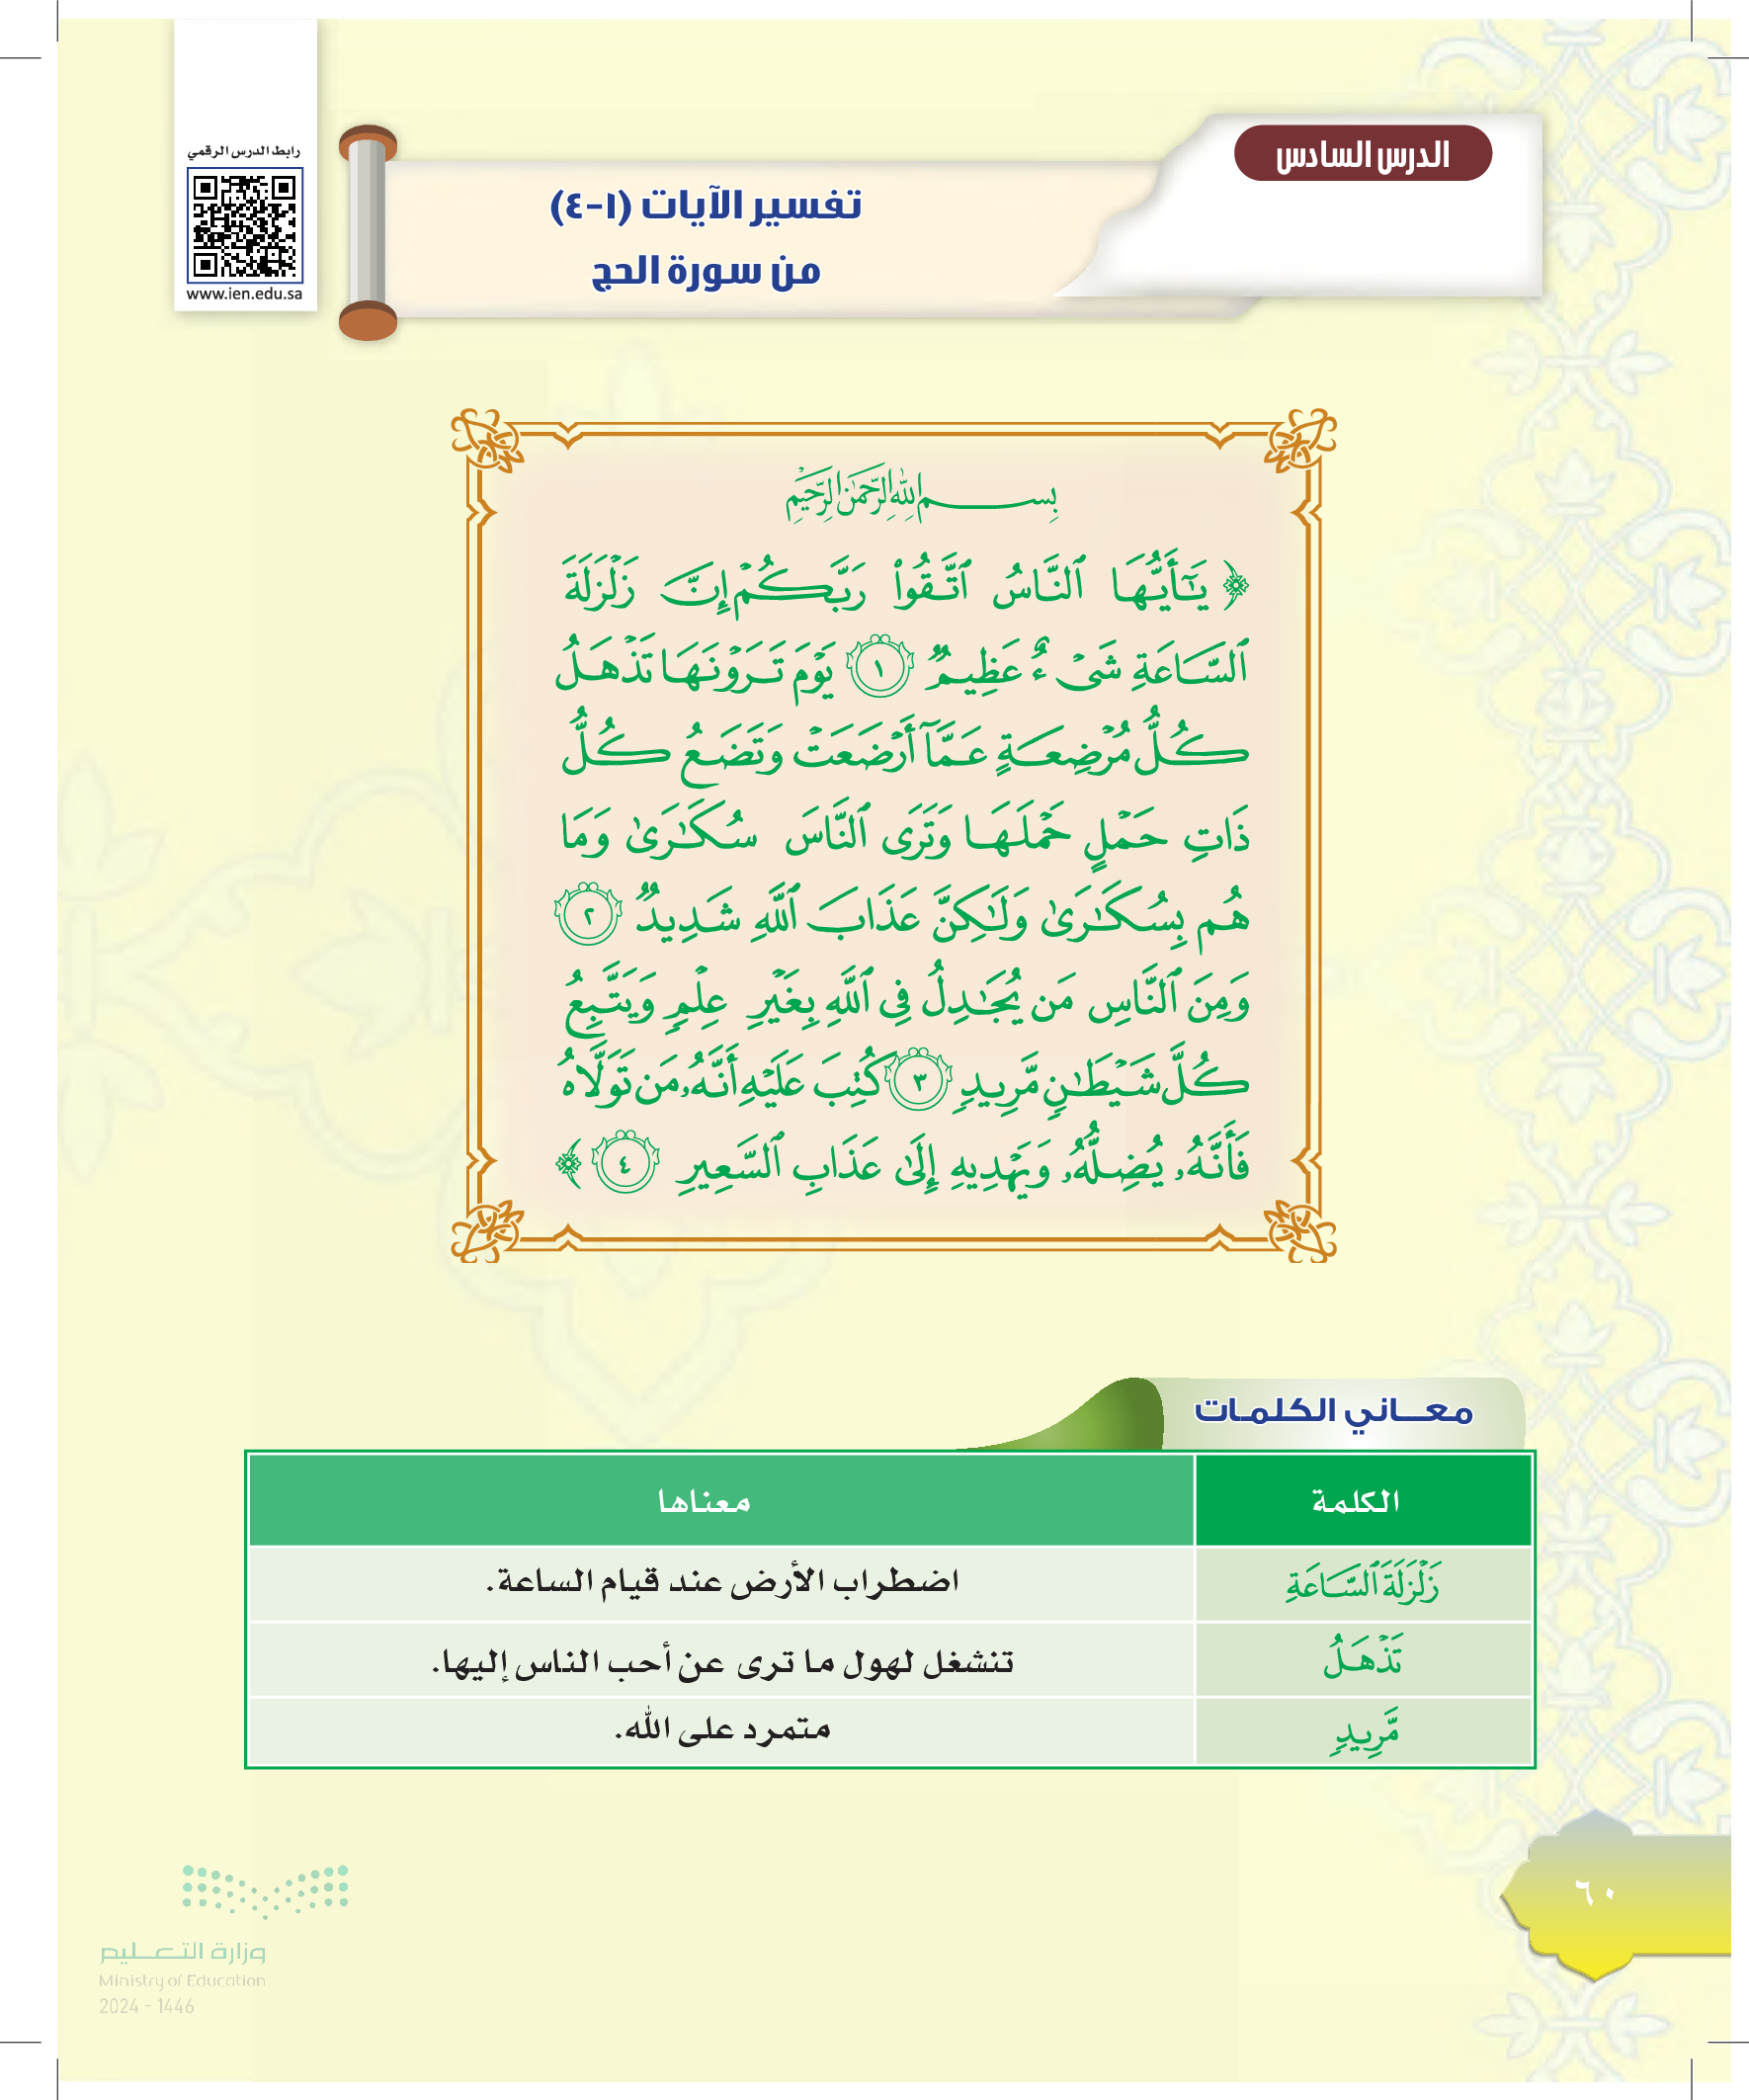 رابط الدرس الرقمي
www.ien.edu.sa
الدرس السادس
تفسير الآيات (١-٤)
من سورة الحج
بِسْمِ اللَّهِ الرَّحْمَٰنِ الرَّحِيمِ
﴿ يَٰٓأَيُّهَا ٱلنَّاسُ ٱتَّقُوا۟ رَبَّكُمْ إِنَّ زَلْزَلَةَ
ٱلسَّاعَةِ شَىْءٌ عَظِيمٌ ١ يَوْمَ تَرَوْنَهَا تَذْهَلُ
كُلُّ مُرْضِعَةٍ عَمَّآ أَرْضَعَتْ وَتَضَعُ كُلُّ
ذَاتِ حَمْلٍ حَمْلَهَا وَتَرَى ٱلنَّاسَ سُكَٰرَىٰ وَمَا
هُم بِسُكَٰرَىٰ وَلَٰكِنَّ عَذَابَ ٱللَّهِ شَدِيدٌ ٢
وَمِنَ ٱلنَّاسِ مَن يُجَٰدِلُ فِى ٱللَّهِ بِغَيْرِ عِلْمٍ وَيَتَّبِعُ
كُلَّ شَيْطَٰنٍ مَّرِيدٍ ٣ كُتِبَ عَلَيْهِ أَنَّهُۥ مَن تَوَلَّاهُ
فَأَنَّهُۥ يُضِلُّهُۥ وَيَهْدِيهِ إِلَىٰ عَذَابِ ٱلسَّعِيرِ ٤ ﴾
معـــاني الكلمـات
الكلمة معناها
زَلْزَلَةَ ٱلسَّاعَةِ اضطراب الأرض عند قيام الساعة.
تَذْهَلُ تنشغل لهول ما ترى عن أحب الناس إليها.
مَّرِيدٍ متمرد على الله.
٦٠
وزارة التعـــليم
Ministry of Education
2024 - 1446